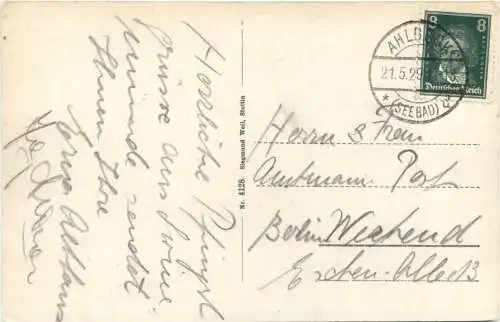 Herzliche Pfingst
grüsse aus Swine
münde sendet
Ihnen Ihre
Erna
Nr. 4128. Siegmund Weil, Stettin
8 8
Deutsches Reich
AHLBECK
21.5.29
(SEEBAD)
Herrn & Frau
Amtmann Post
Berlin Westend
Eschen-Allee 13